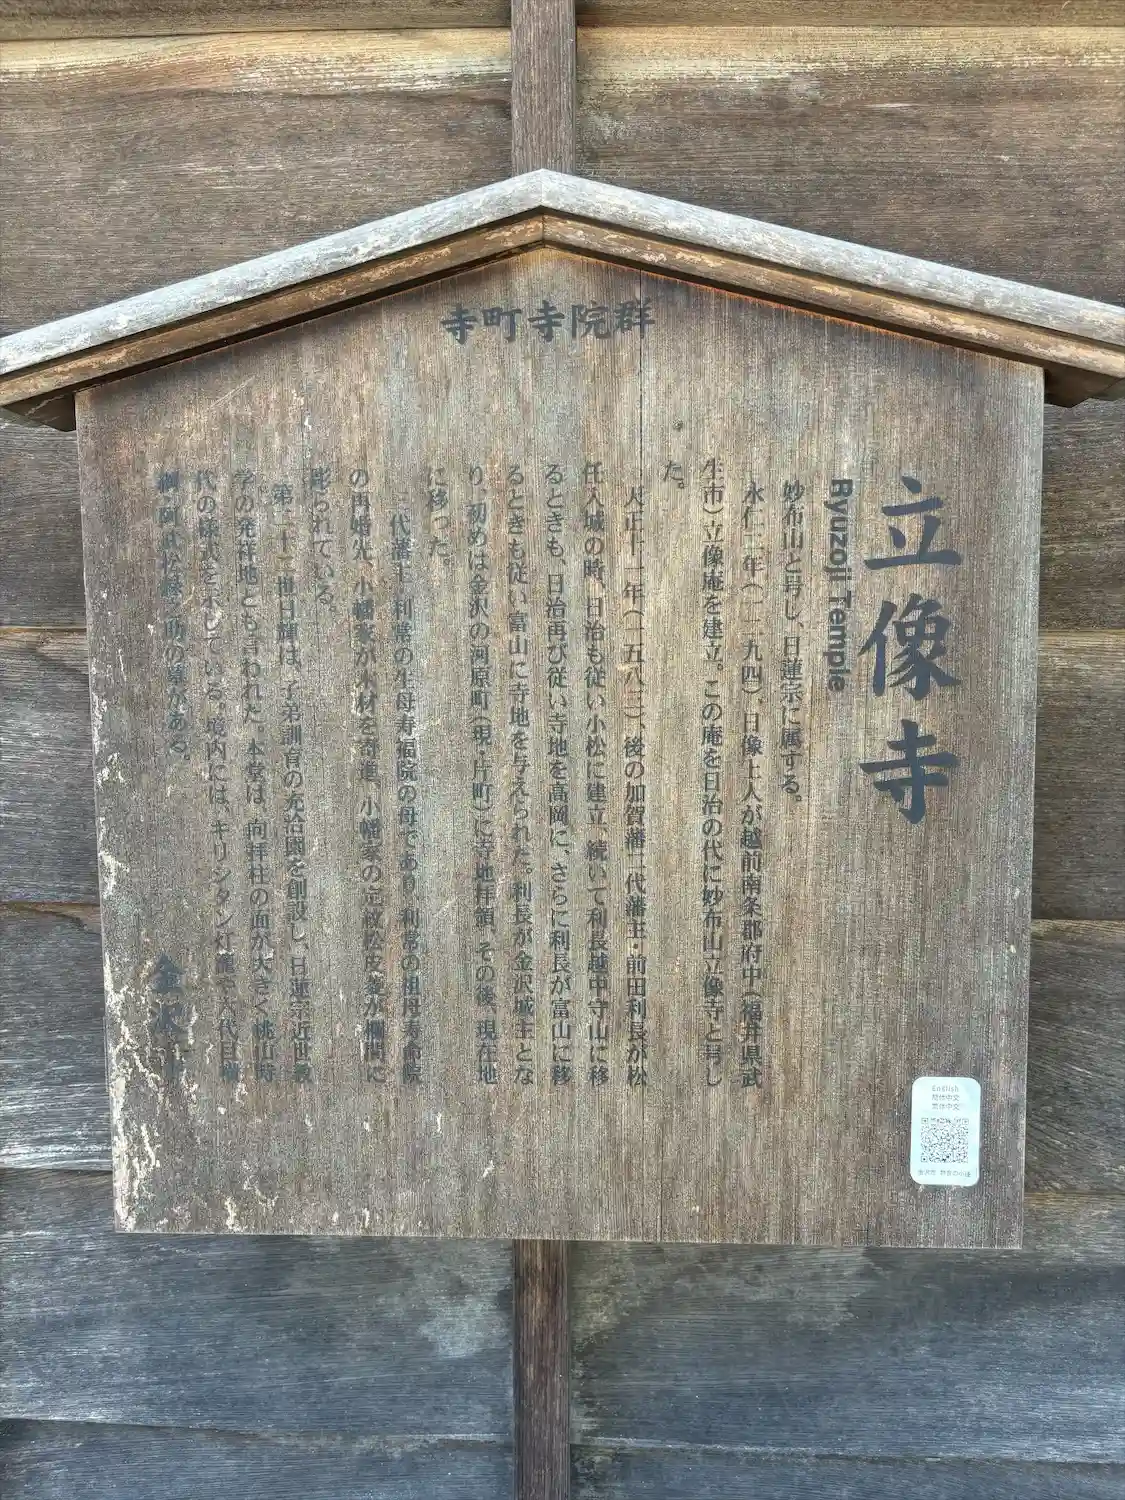 寺町寺院群
立像寺
Ryuzoji Temple
妙布山と号し、日蓮宗に属する。
永仁二年(一二九四)、日像上人が越前南条郡府中(福井県武
生市)立像庵を建立。この庵を日治の代に妙布山立像寺と号し
た。
天正十一年(一五八三)、後の加賀藩二代藩主・前田利長が松
任入城の時、日治も従い小松に建立、続いて利長越中守山に移
るときも、日治再び従い寺地を高岡に、さらに利長が富山に移
るときも従い富山に寺地を与えられた。利長が金沢城主とな
り、初めは金沢の河原町(現・片町)に寺地拝領、その後、現在地
に移った。
三代藩主・利常の生母寿福院の母であり、利常の祖母寿命院
の再婚先、小幡家が木材を寄進、小幡家の定紋松皮菱が欄間に
彫られている。
第二十二世日輝は、子弟訓育の充洽園を創設し、日蓮宗近世教
学の発祥地とも言われた。本堂は、向拝柱の面が大きく桃山時
代の様式を示している。境内には、キリシタン灯籠や六代目横
綱・阿武松緑之助の墓がある。
金沢市
English
简体中文
繁体中文